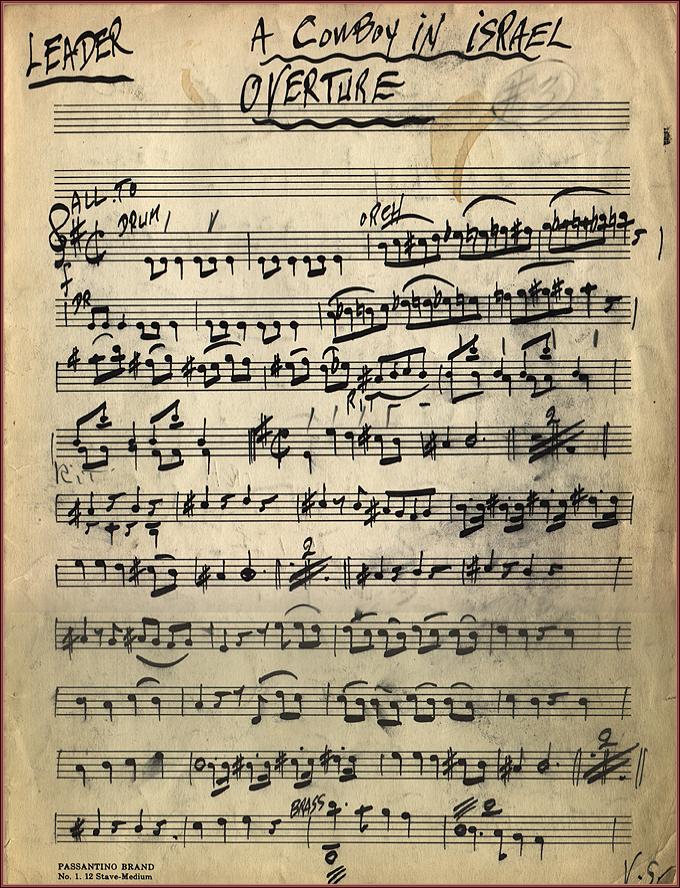 LEADER
A COWBOY IN ISRAEL
OVERTURE
#3
ALL. TO
DRUM
ORCH
DR
RIT
Rit
2
2
2
BRASS
2
PASSANTINO BRAND
No. 1. 12 Stave-Medium
V.S.